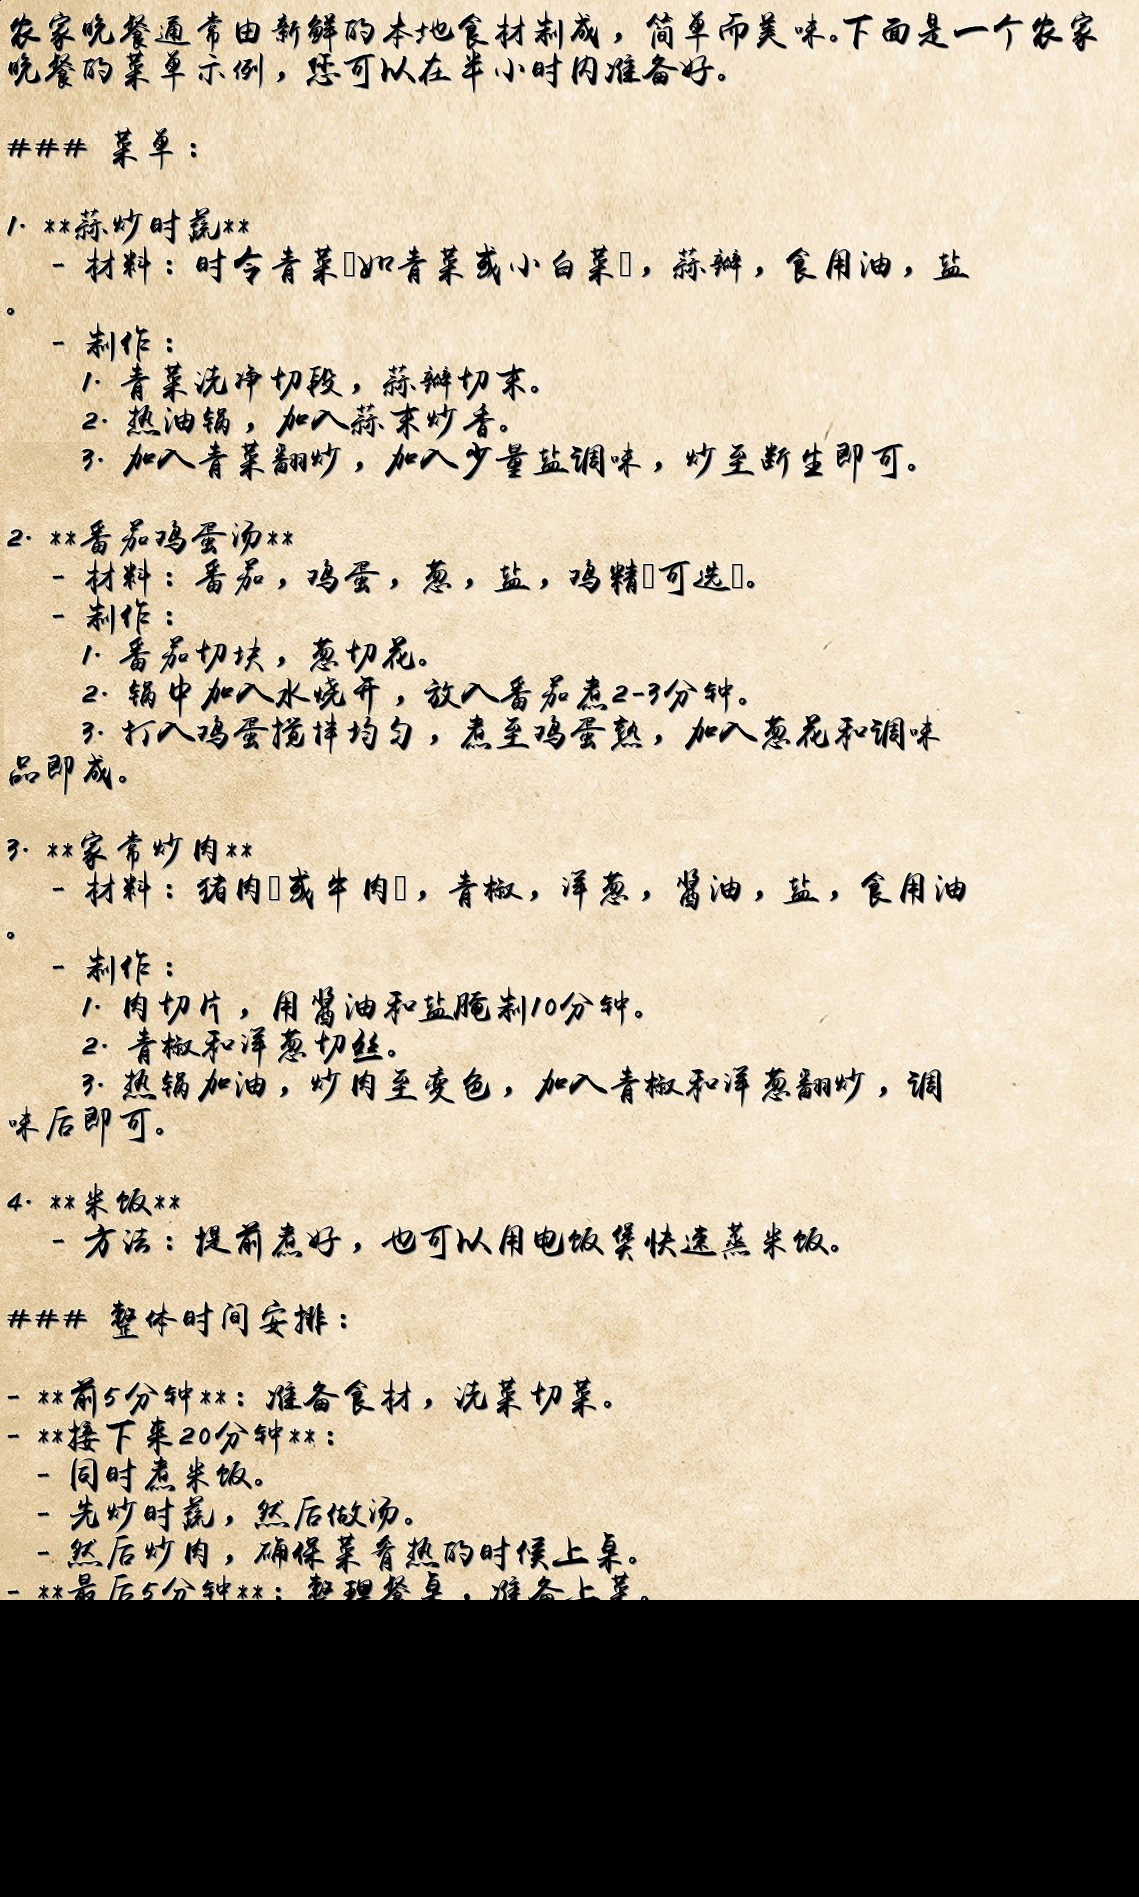 农家晚餐通常由新鲜的本地食材制成，简单而美味。下面是一个农家
晚餐的菜单示例，您可以在半小时内准备好。
### 菜单：
1. **蒜炒时蔬**
- 材料：时令青菜▯如青菜或小白菜▯，蒜瓣，食用油，盐
。
- 制作：
1. 青菜洗净切段，蒜瓣切末。
2. 热油锅，加入蒜末炒香。
3. 加入青菜翻炒，加入少量盐调味，炒至断生即可。
2. **番茄鸡蛋汤**
- 材料：番茄，鸡蛋，葱，盐，鸡精▯可选▯。
- 制作：
1. 番茄切块，葱切花。
2. 锅中加入水烧开，放入番茄煮2-3分钟。
3. 打入鸡蛋搅拌均匀，煮至鸡蛋熟，加入葱花和调味
品即成。
3. **家常炒肉**
- 材料：猪肉▯或牛肉▯，青椒，洋葱，酱油，盐，食用油
。
- 制作：
1. 肉切片，用酱油和盐腌制10分钟。
2. 青椒和洋葱切丝。
3. 热锅加油，炒肉至变色，加入青椒和洋葱翻炒，调
味后即可。
4. **米饭**
- 方法：提前煮好，也可以用电饭煲快速蒸米饭。
### 整体时间安排：
- **前5分钟**：准备食材，洗菜切菜。
- **接下来20分钟**：
- 同时煮米饭。
- 先炒时蔬，然后做汤。
- 然后炒肉，确保菜肴热的时候上桌。
- **最后5分钟**：整理餐桌，准备上菜。